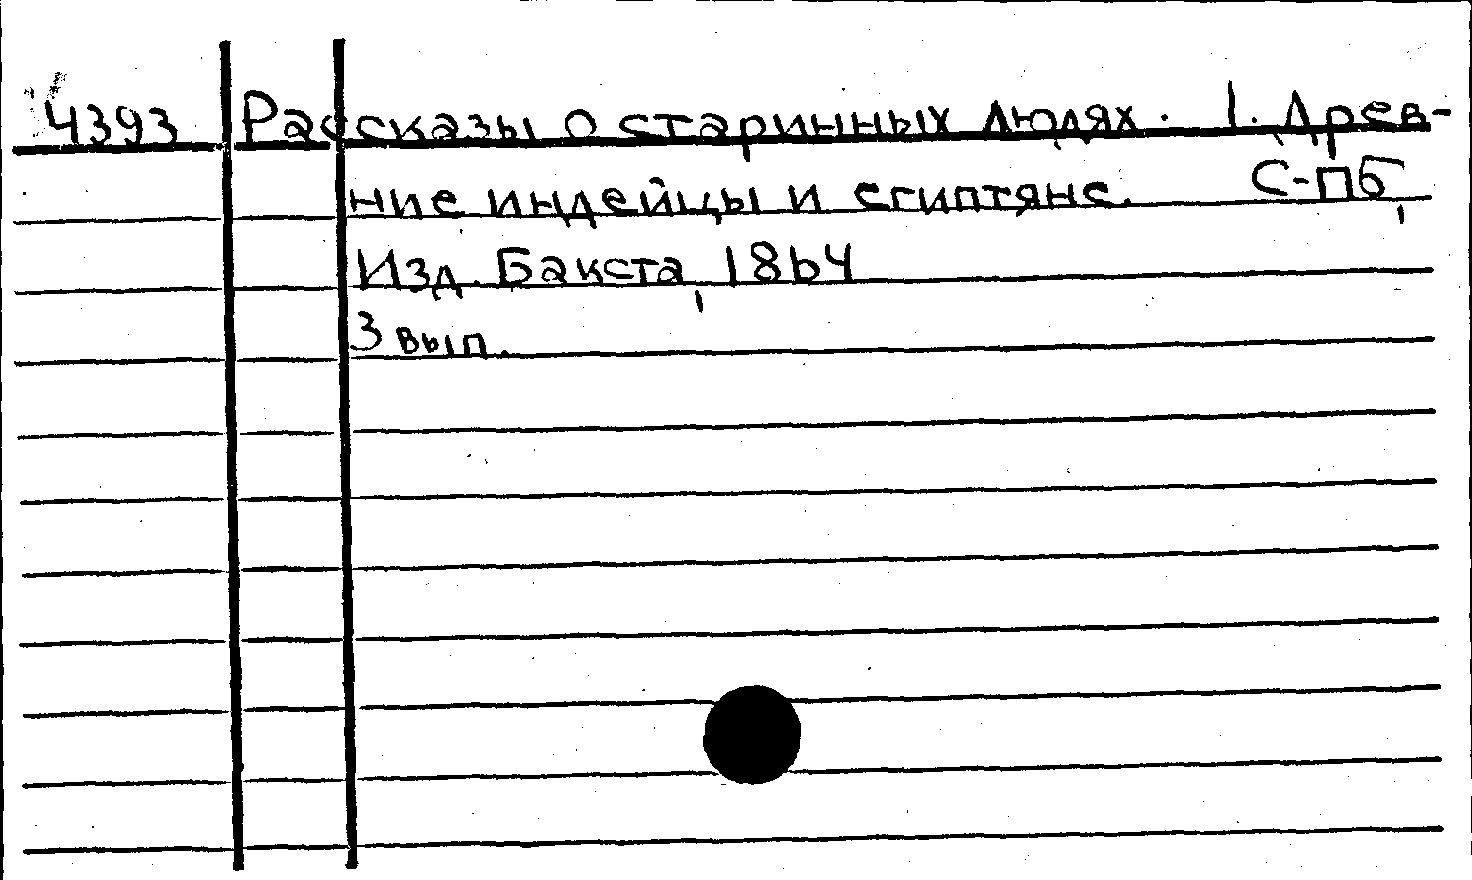 4393 Рассказы о старинных людях. 1. Древ-
ние индейцы и египтяне. С-пб,
Изд. Бакста, 1864
3 вып.